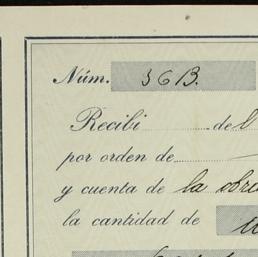 Núm. 36B.
Recibí de l
por orden de
y cuenta de la obr
la cantidad de